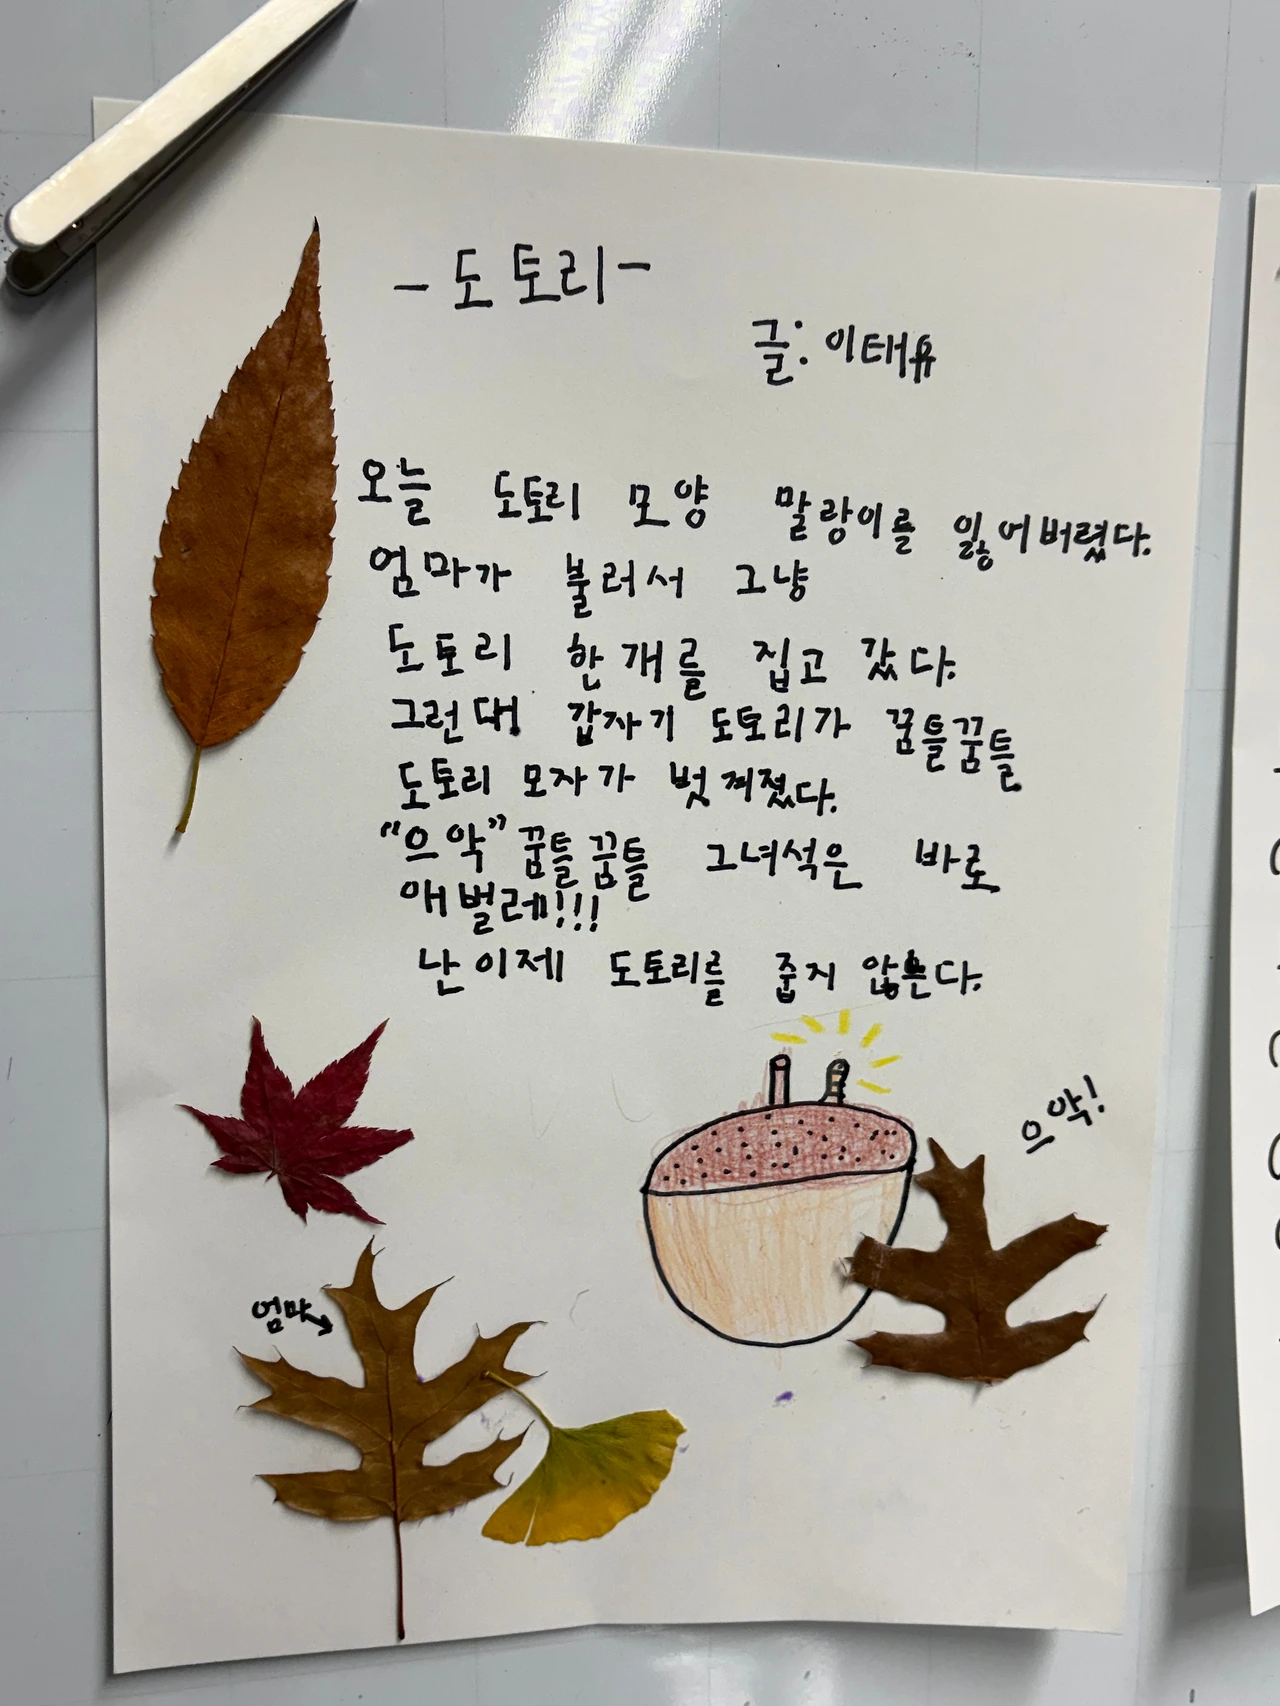 -도토리-
글: 이태유
오늘 도토리 모양 말랑이를 잃어버렸다.
엄마가 불러서 그냥
도토리 한개를 집고 갔다.
그런대 갑자기 도토리가 꿈틀꿈틀
도토리 모자가 벗겨졌다.
“으악” 꿈틀꿈틀 그녀석은 바로
애벌레!!!
난 이제 도토리를 줍지 않는다.
으악!
엄마→